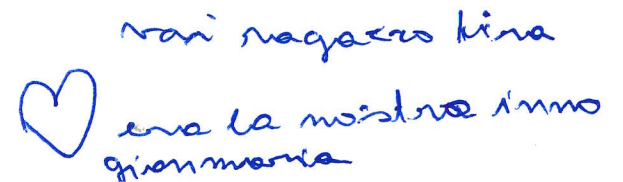 vari ragazzo lira
era la nostra inno
gianmaria